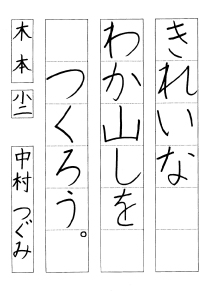 きれいな
わか山しを
つくろう。
木本 小二 中村 つぐみ